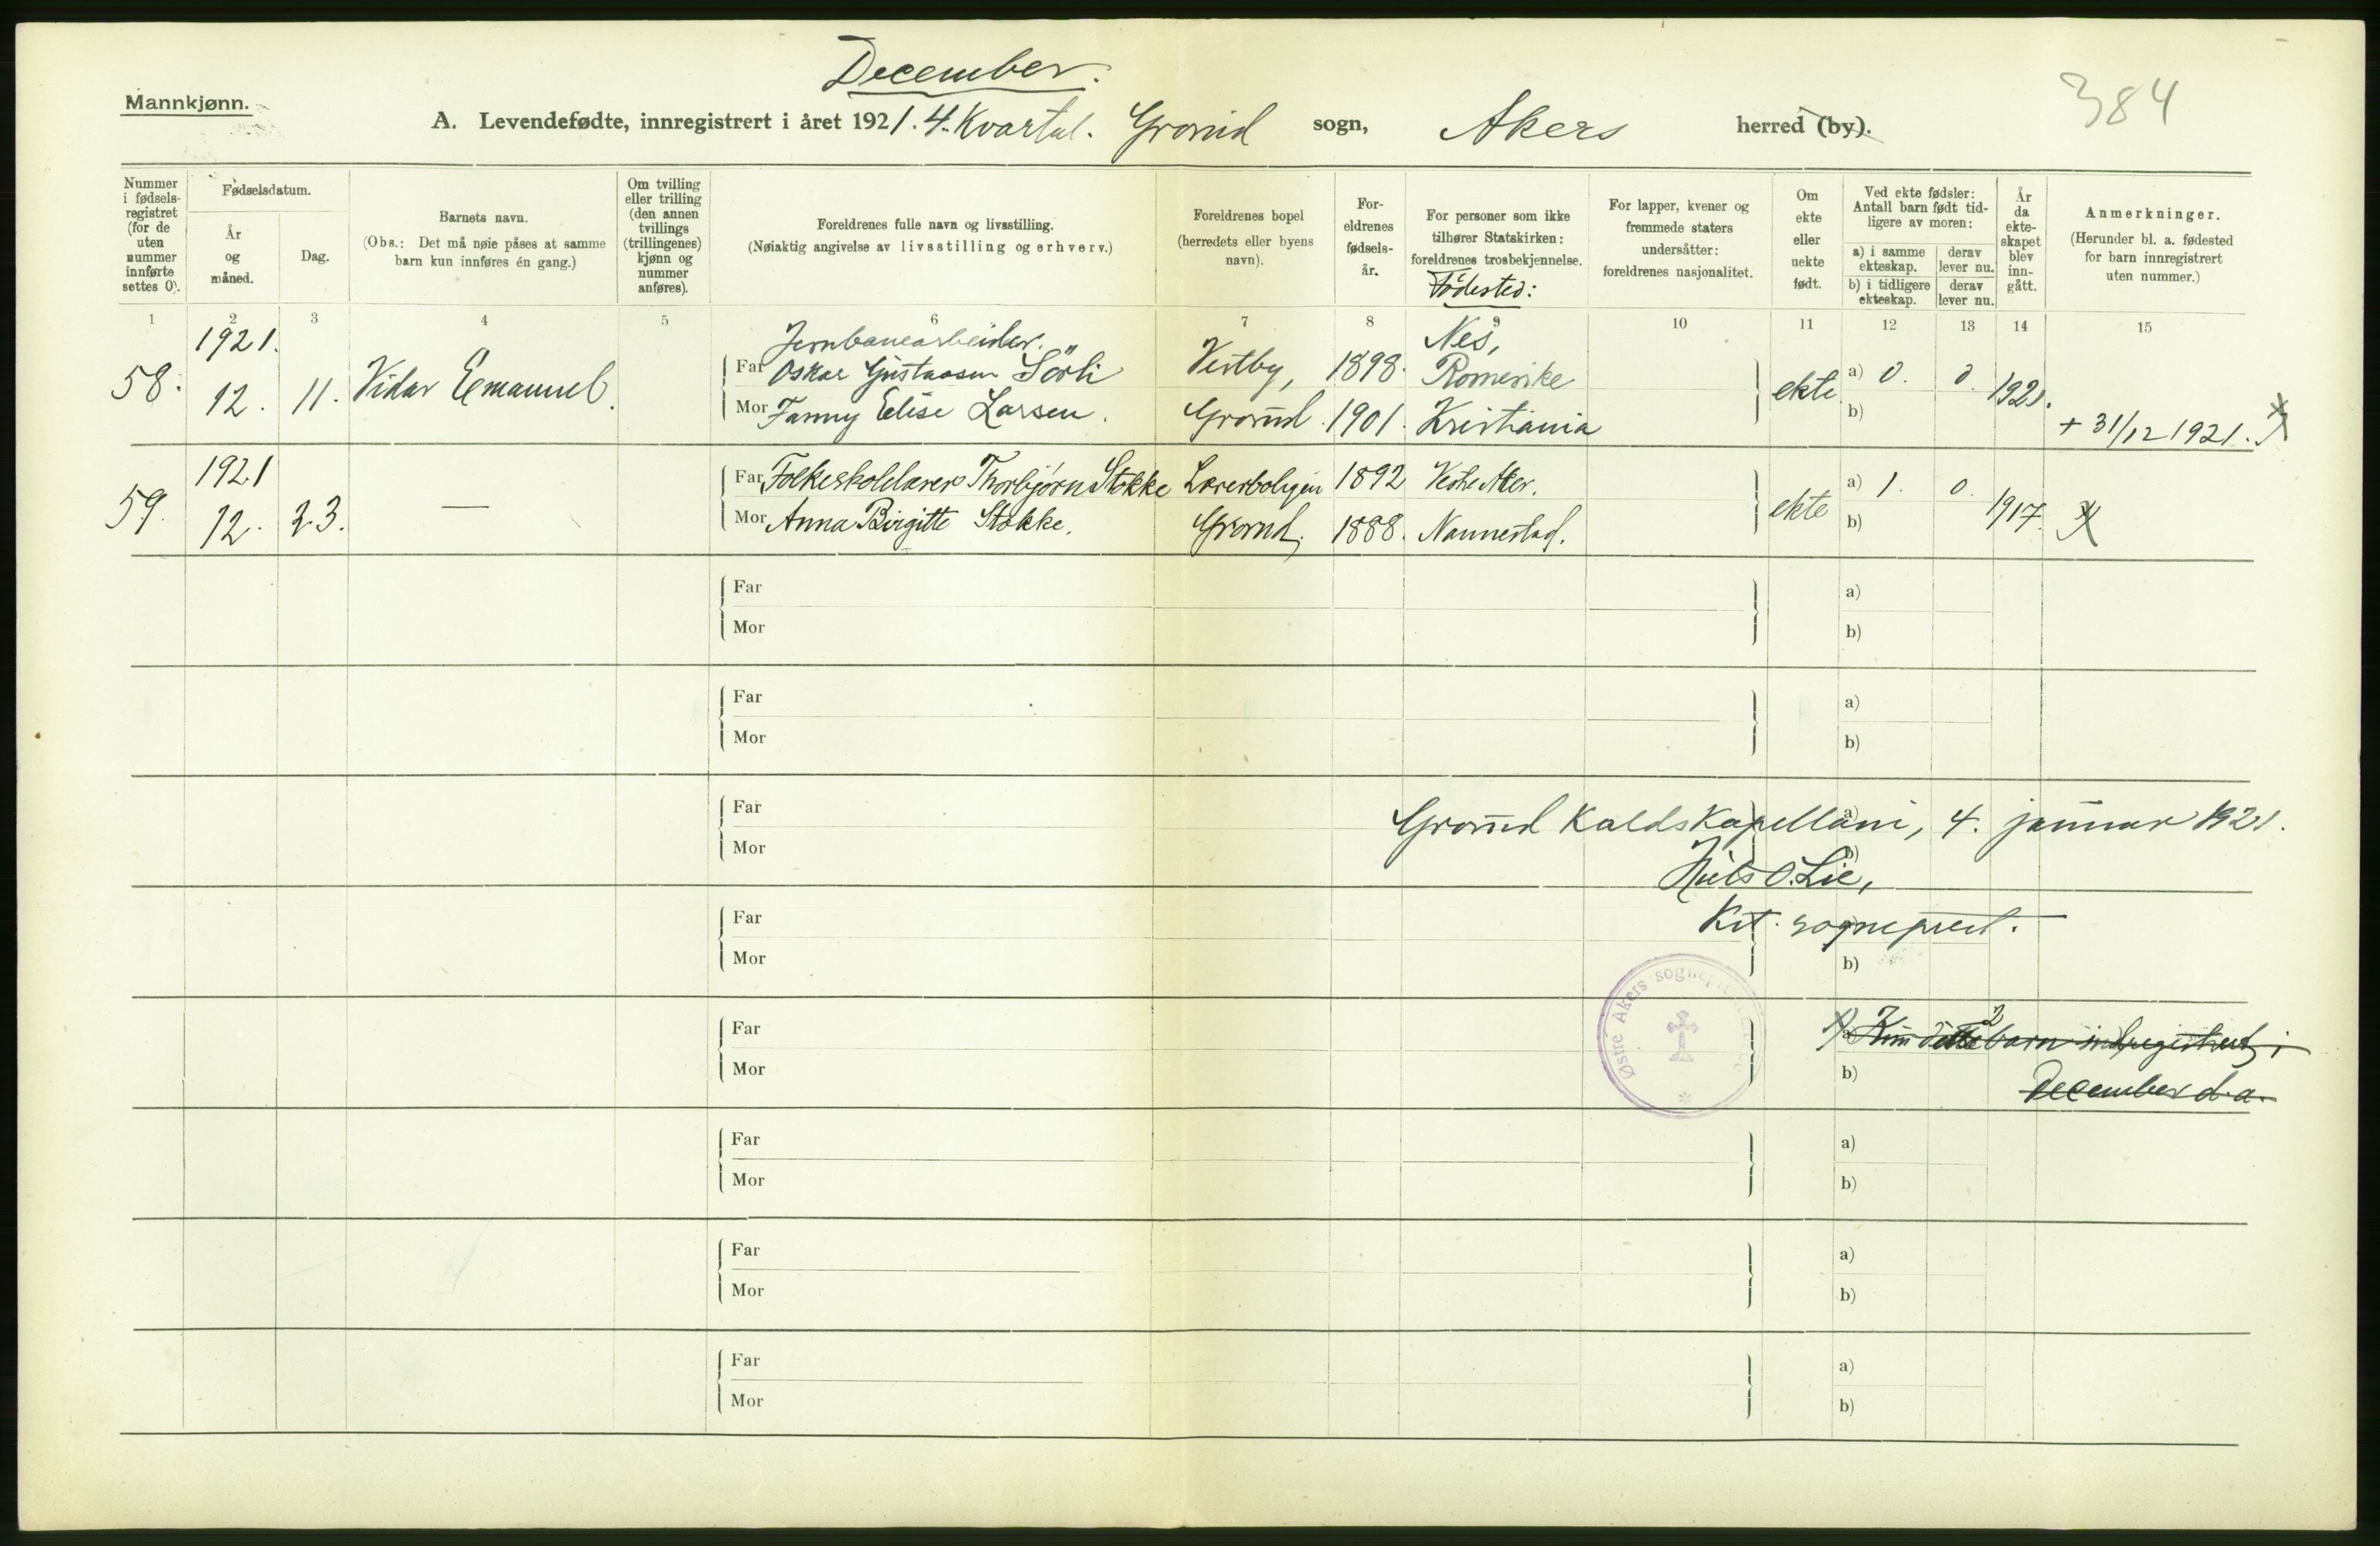 December.
Mannkjønn.
A. Levendefødte, innregistrert i året 1921. 4. Kvartal. Grorud sogn, Akers herred (by).
384
Nummer i fødselsregistret (for de uten nummer innførte settes 0).
Fødselsdatum.
År og måned.
Dag.
Barnets navn.
(Obs.: Det må nøie påses at samme barn kun innføres én gang.)
Om tvilling eller trilling (den annen tvillings (trillingenes) kjønn og nummer anføres).
Foreldrenes fulle navn og livsstilling.
(Nøiaktig angivelse av livsstilling og erhverv.)
Foreldrenes bopel (herredets eller byens navn).
Foreldrenes fødselsår.
For personer som ikke tilhører Statskirken: foreldrenes trosbekjennelse.
Födested:
For lapper, kvener og fremmede staters undersåtter: foreldrenes nasjonalitet.
Om ekte eller uekte født.
Ved ekte fødsler: Antall barn født tidligere av moren:
a) i samme ekteskap.
derav lever nu.
b) i tidligere ekteskap.
derav lever nu.
År da ekteskapet blev inngått.
Anmerkninger.
(Herunder bl. a. fødested for barn innregistrert uten nummer.)
1 2 3 4 5 6 7 8 9 10 11 12 13 14 15
58. 1921. 12. 11. Vidar Emanuel.
Jernbanearbeider.
Far Oskar Gustavsen Sörli Vestby, 1898. Nes, Romerike
Mor Fanny Elise Larsen. Grorud. 1901. Kristiania
ekte a) 0. 0. b) 1921. + 31/12 1921. X
59. 1921 12. 23. —
Far Folkeskolelærer Thorbjørn Stokke Lærerboligen 1892 Vestre Aker.
Mor Anna Birgitte Stokke. Grorud. 1888. Nannestad.
ekte a) 1. 0. b) 1917. X
Far a)
Mor b)
Far a)
Mor b)
Far a)
Mor b)
Grorud Kaldskapellani, 4. januar 1921.
Niels O. Lie,
Kst. sogneprest.
Far
Mor b)
Østre Akers
Far a)
Mor b)
X) Kun dette 2 barn indregistrert i
December d. a.
Far a)
Mor b)
Far a)
Mor b)
Far a)
Mor b)